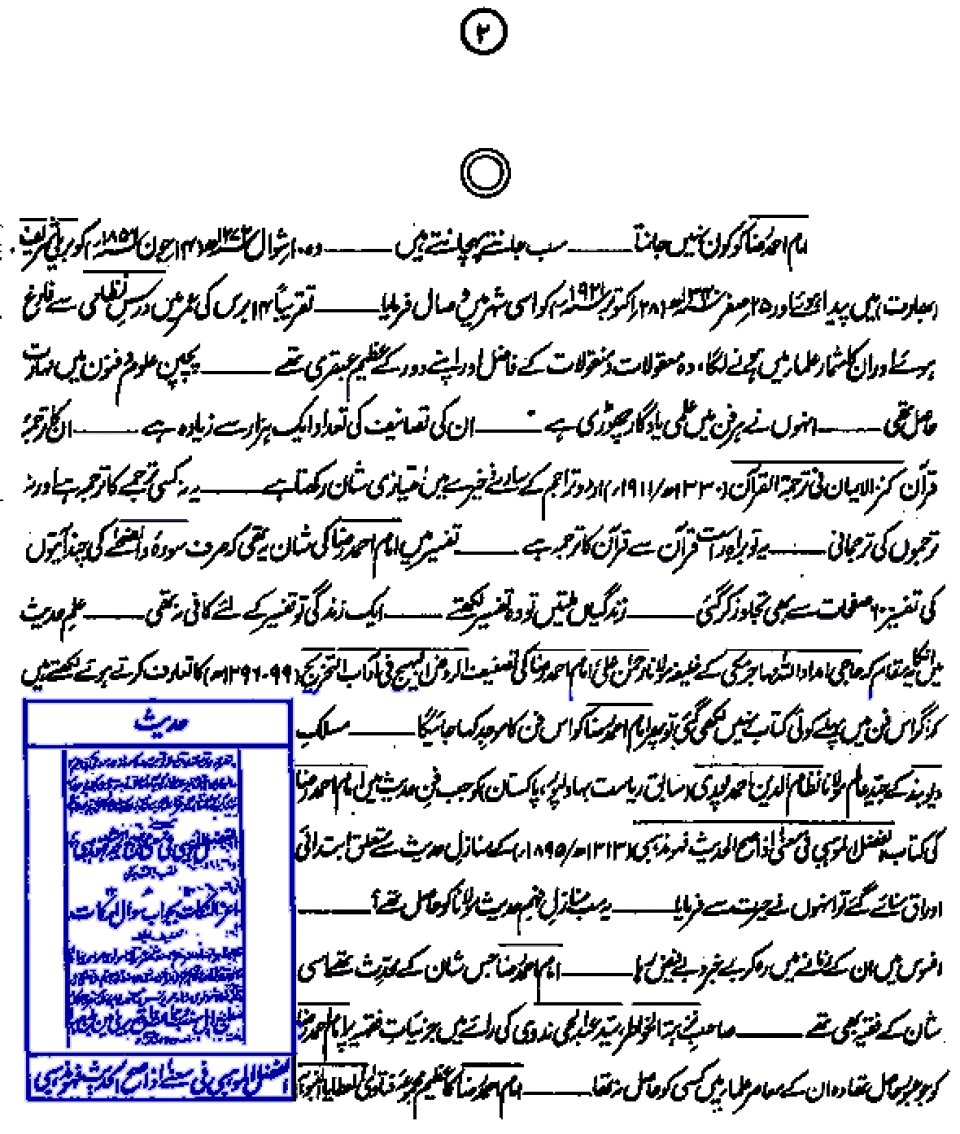 ۲
امام احمد رضا کو کون نہیں جانتا ــــــ سب جانتے پہچانتے ہیں ــــــ وہ ۱۰ شوال ۱۲۷۲ھ / ۱۴ جون ۱۸۵۶ء کو بریلی شریف
(بھارت) میں پیدا ہوئے اور ۲۵ صفر ۱۳۴۰ھ / ۲۸ اکتوبر ۱۹۲۱ء کو اسی شہر میں وصال فرمایا ــــــ تقریباً ۱۴ برس کی عمر میں درس نظامی سے فارغ
ہوئے اور ان کا شمار علماء میں ہونے لگا، وہ معقولات و منقولات کے فاضل اور اپنے دور کے عظیم عبقری تھے ــــــ پچپن علوم و فنون میں مہارت
حاصل تھی ــــــ انہوں نے ہر فن میں علمی یادگار چھوڑی ہے ــــــ ان کی تصانیف کی تعداد ایک ہزار سے زیادہ ہے ــــــ ان کا ترجمۂ
قرآن کنز الایمان فی ترجمۃ القرآن (۱۳۳۰ھ/۱۹۱۱ء) اردو تراجم کے سارے ذخیرے میں امتیازی شان رکھتا ہے ــــــ یہ نہ کسی ترجمے کا ترجمہ ہے اور نہ
ترجموں کی ترجمانی ــــــ یہ تو براہ راست قرآن سے قرآن کا ترجمہ ہے ــــــ تفسیر میں امام احمد رضا کی شان یہ تھی کہ صرف سورۂ والضحیٰ کی چند آیتوں
کی تفسیر ۶۰۰ صفحات سے بھی تجاوز کر گئی ــــــ زندگیاں ملتیں تو وہ تفسیر لکھتے ــــــ ایک زندگی تو تفسیر کے لئے کافی نہ تھی ــــــ علم حدیث
میں انکا یہ مقام کہ حاجی امداد اللہ مہاجر مکی کے خلیفہ مولانا رحمٰن علی امام احمد رضا کی تصنیف الروض البہیج فی آداب التخریج (۹۹-۱۲۹۶ھ) کا تعارف کرتے ہوئے لکھتے ہیں
کہ اگر اس فن میں پہلے کوئی کتاب نہیں لکھی گئی تو پھر امام احمد رضا کو اس فن کا موجد کہا جائیگا ــــــ مسلک
دیوبند کے جید عالم مولانا نظام الدین احمد پوری (سابق ریاست بہاولپور، پاکستان) کو جب فن حدیث میں امام احمد رضا
کی کتاب الفضل الموہبی فی معنیٰ اذا صح الحدیث فہو مذہبی (۱۳۱۳ھ/۱۸۹۵ء) کے منازل حدیث سے متعلق ابتدائی
اوراق سنائے گئے تو انہوں نے حیرت سے فرمایا ــــــ یہ سب منازل فہم حدیث مولانا کو حاصل تھے؟ ــــــ
افسوس میں ان کے زمانے میں رہ کر بے خبر و بے فیض رہا ــــــ امام احمد رضا جس شان کے محدث تھے اسی
شان کے فقیہ بھی تھے ــــــ صاحب نزہۃ الخواطر، سید عبد الحی ندوی کی رائے میں جزئیات فقہ پر امام احمد رضا
کو جو عبور حاصل تھا وہ ان کے معاصر علماء میں کسی کو حاصل نہ تھا ــــــ امام احمد رضا کا عظیم مجموعہ فتاویٰ العطایا النبویہ
حدیث
الفضل الموہبی فی معنیٰ اذا صح الحدیث فہو مذہبی